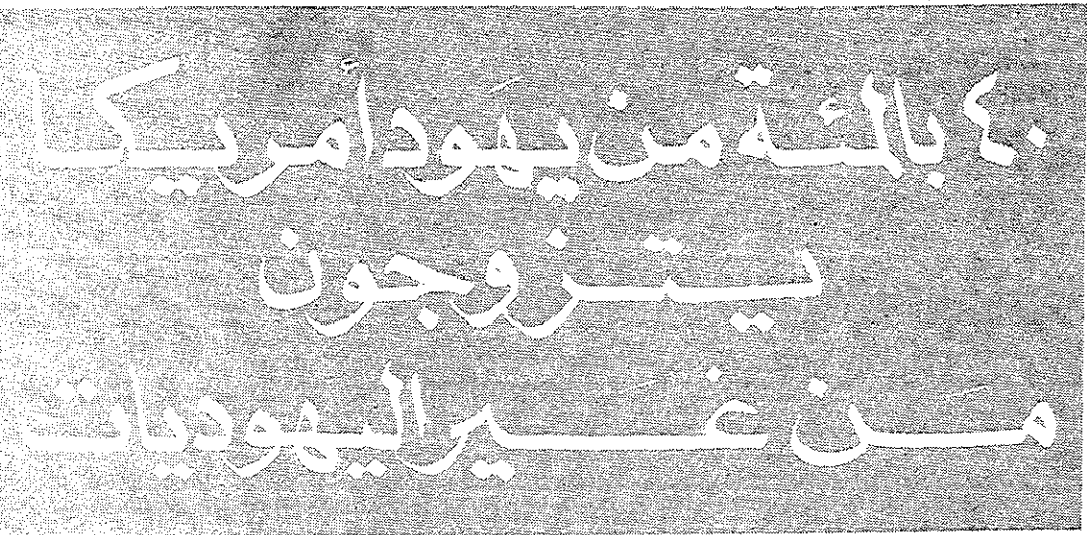 ٤٠ بالمئة من يهود أمريكا
يتزوجون
من غير اليهوديات